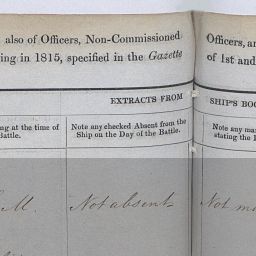 also of Officers, Non-Commissioned
ing in 1815, specified in the Gazette
Officers, an
of 1st and
EXTRACTS FROM
SHIP'S BOO
ng at the time of
Battle.
Note any checked Absent from the
Ship on the Day of the Battle.
Note any ma
stating the
M.
Not absent
Not m